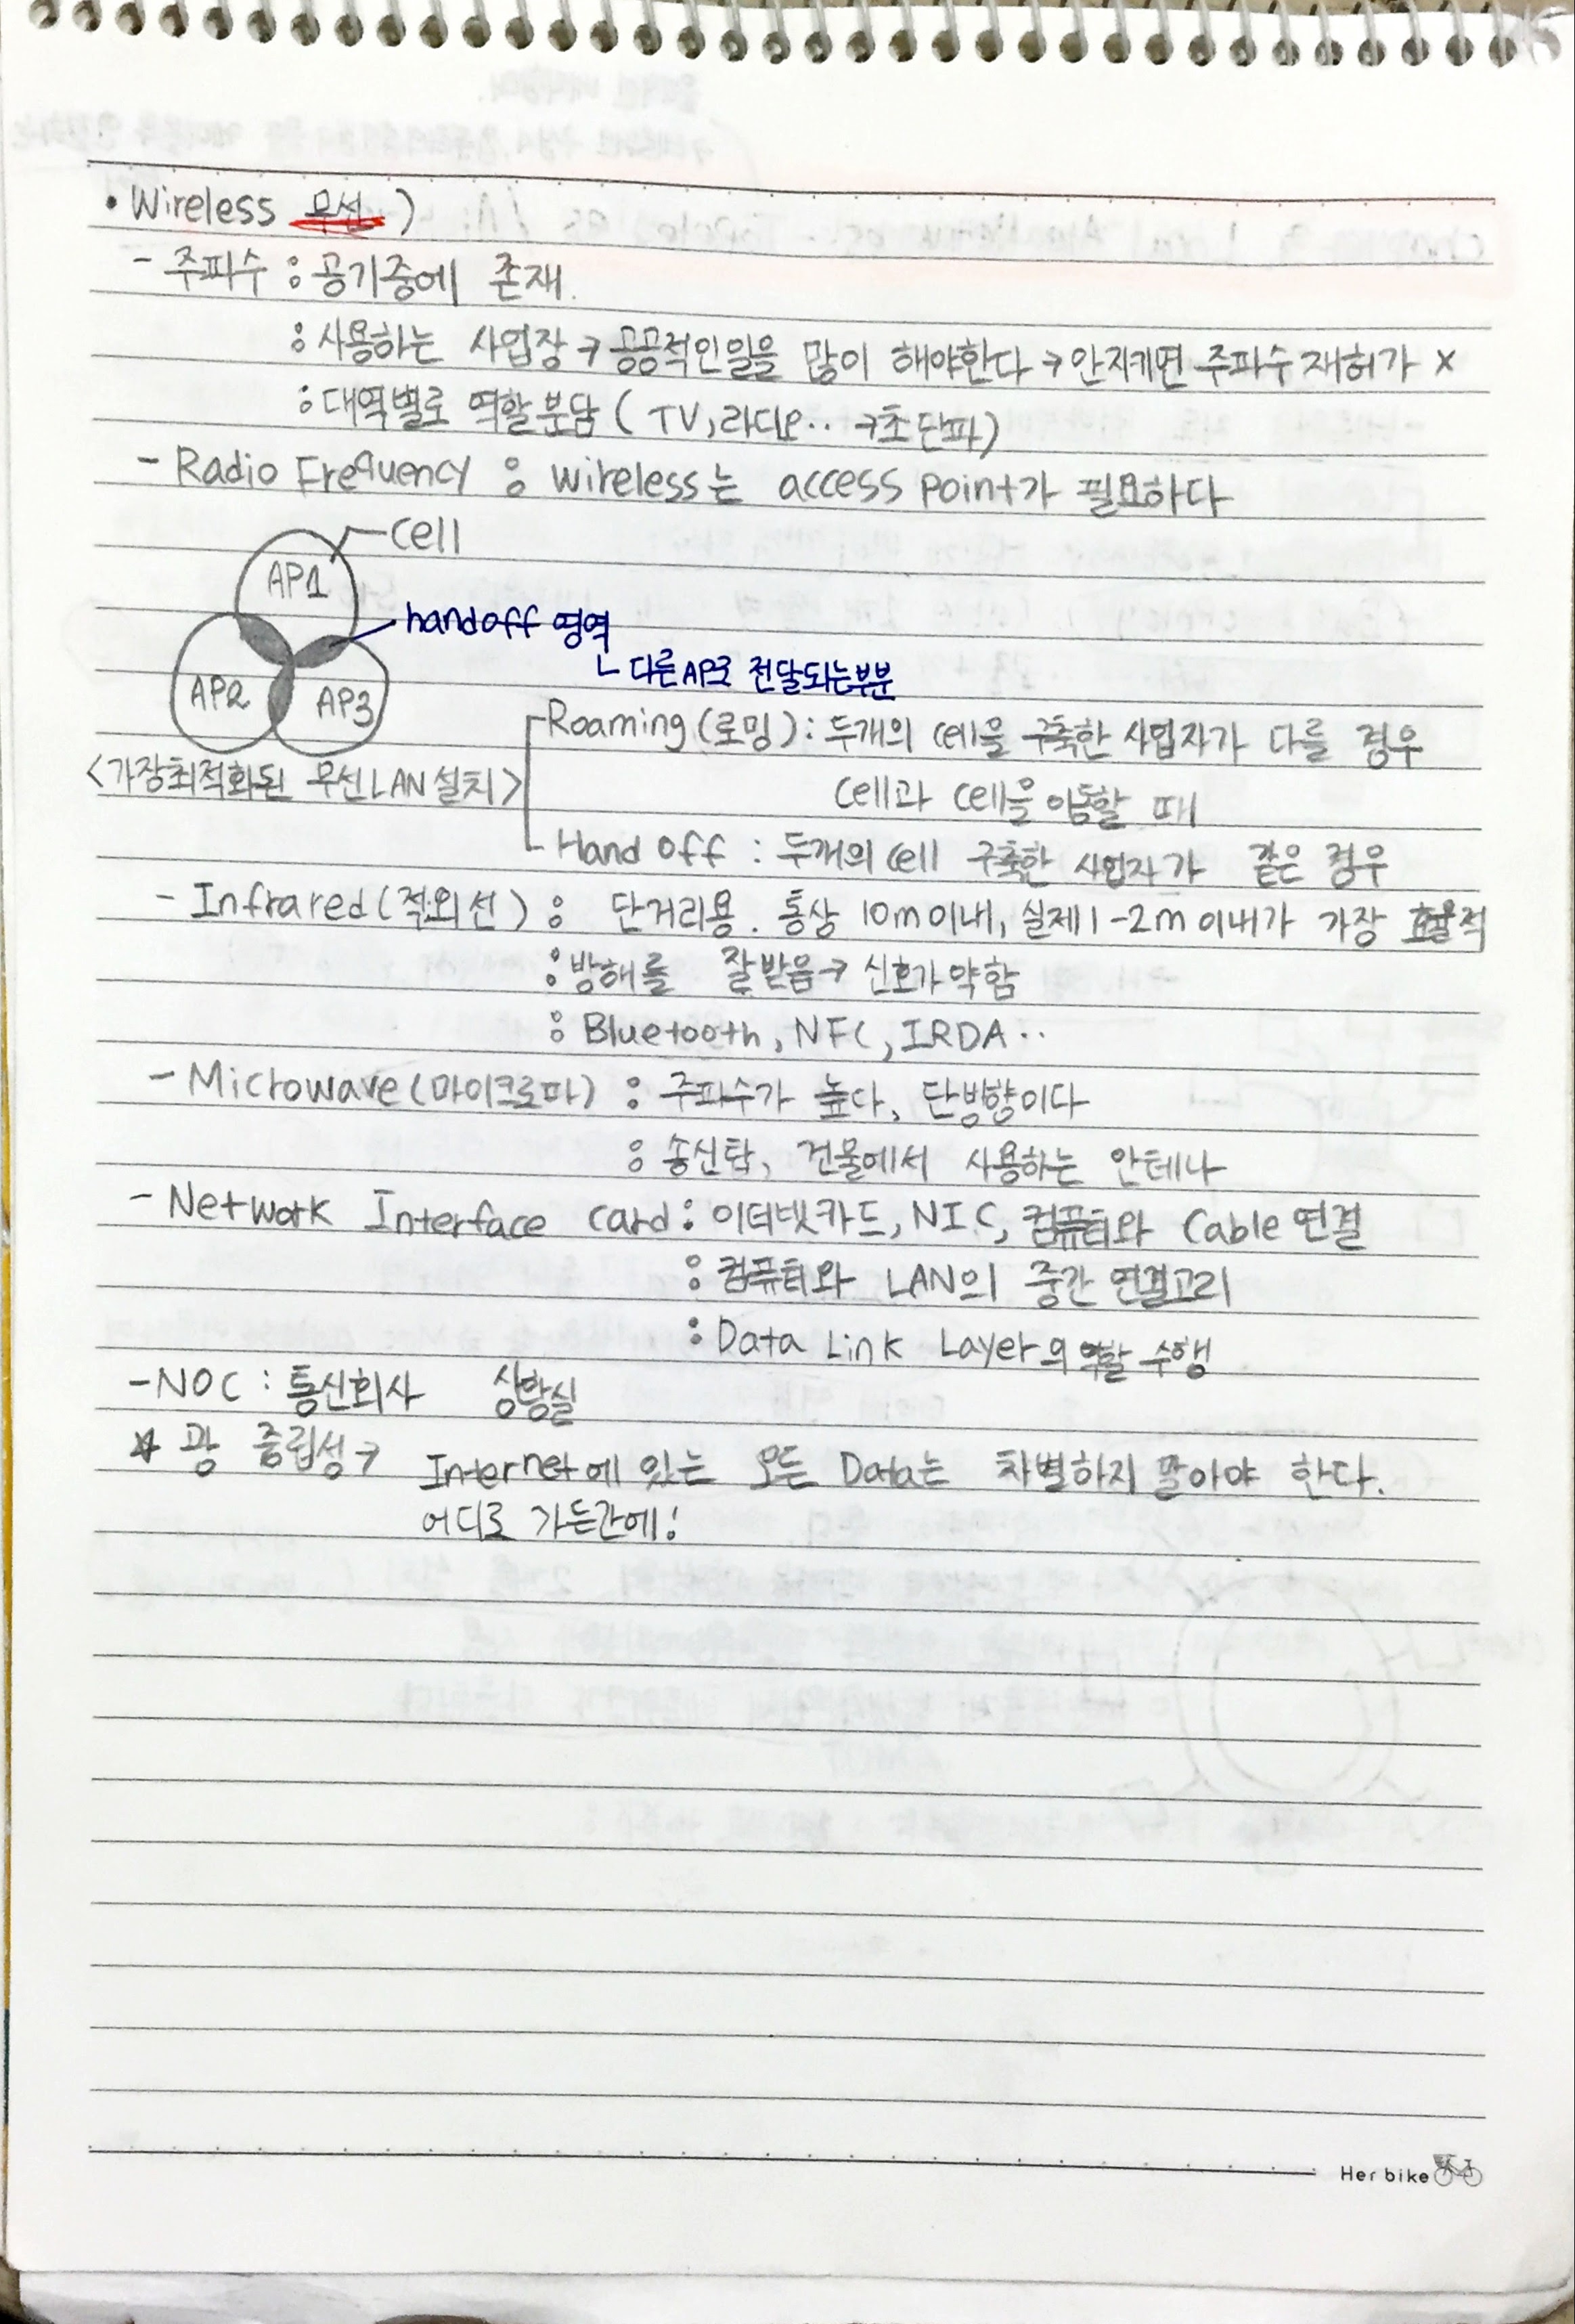 • Wireless 무선)
- 주파수 : 공기중에 존재.
: 사용하는 사업장 → 공공적인일을 많이 해야한다 → 안지키면 주파수 재허가 x
: 대역별로 역할분담 ( TV, 라디오.. → 초단파)
- Radio Frequency : wireless는 access point가 필요하다
cell
AP1
handoff 영역
AP2 AP3
ㄴ 다른AP로 전달되는부분
Roaming (로밍) : 두개의 cell을 구축한 사업자가 다를 경우
<가장최적화된 무선LAN설치>
cell과 cell을 이동할 때
Hand off : 두개의 cell 구축한 사업자가 같은 경우
- Infrared (적외선) : 단거리용. 통상 10m이내, 실제1-2m이내가 가장 효율적
: 방해를 잘받음 → 신호가 약함
: Bluetooth, NFC, IRDA..
- Microwave (마이크로파) : 주파수가 높다, 단방향이다
: 송신탑, 건물에서 사용하는 안테나
- Network Interface card : 이더넷카드, NIC, 컴퓨터와 Cable 연결
: 컴퓨터와 LAN의 중간 연결고리
: Data Link Layer의 역할 수행
- NOC : 통신회사 상황실
☆ 광 중립성 → Internet에 있는 모든 Data는 차별하지 말아야 한다.
어디로 가든간에!
Her bike